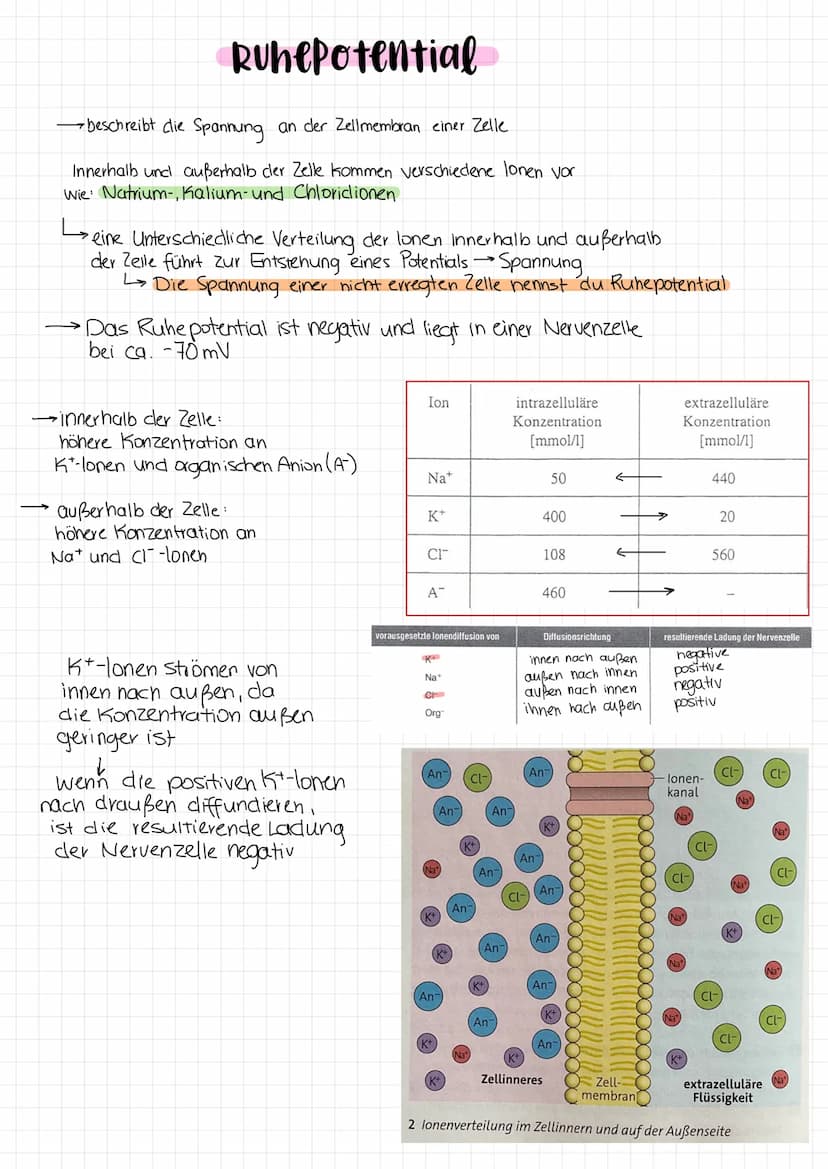 RUHEPOTENTIAL
→ beschreibt die Spannung an der Zellmembran einer Zelle
Innerhalb und außerhalb der Zelle kommen verschiedene Ionen vor
wie: Natrium-, Kalium- und Chloridionen
↳ eine Unterschiedliche Verteilung der Ionen innerhalb und außerhalb
der Zelle führt zur Entstehung eines Potentials → Spannung
↳ Die Spannung einer nicht erregten Zelle nennst du Ruhepotential
→ Das Ruhepotential ist negativ und liegt in einer Nervenzelle
bei ca. -70mV
→ innerhalb der Zelle:
höhere Konzentration an
K⁺-Ionen und organischen Anion (A⁻)
→ außerhalb der Zelle:
höhere Konzentration an
Na⁺ und Cl⁻-Ionen
Ion intrazelluläre extrazelluläre
Konzentration Konzentration
[mmol/l] [mmol/l]
Na⁺ 50 ← 440
K⁺ 400 → 20
Cl⁻ 108 ← 560
A⁻ 460 → –
vorausgesetzte Ionendiffusion von Diffusionsrichtung resultierende Ladung der Nervenzelle
K⁺ innen nach außen negative
Na⁺ außen nach innen positive
Cl⁻ außen nach innen negativ
Org⁻ innen nach außen positiv
K⁺-Ionen strömer von
innen nach außen, da
die Konzentration außen
geringer ist
↓
wenn die positiven K⁺-Ionen
nach draußen diffundieren,
ist die resultierende Ladung
der Nervenzelle negativ
An⁻ Cl⁻ An⁻ Ionen- Cl⁻ Cl⁻
kanal
An⁻ An⁻ Na⁺ Na⁺
K⁺ Na⁺
K⁺ An⁻ Cl⁻
Na⁺ An⁻ Cl⁻ Na⁺ Cl⁻
Cl⁻ An⁻
K⁺ An⁻ Na⁺ K⁺ Cl⁻
K⁺ An⁻ An⁻ Na⁺ Na⁺
An⁻ K⁺ An⁻ Cl⁻
An⁻ K⁺ Na⁺ Cl⁻
K⁺ Na⁺ K⁺ An⁻ K⁺ Cl⁻
K⁺ Zellinneres Zell- extrazelluläre Na⁺
membran Flüssigkeit
2 Ionenverteilung im Zellinnern und auf der Außenseite